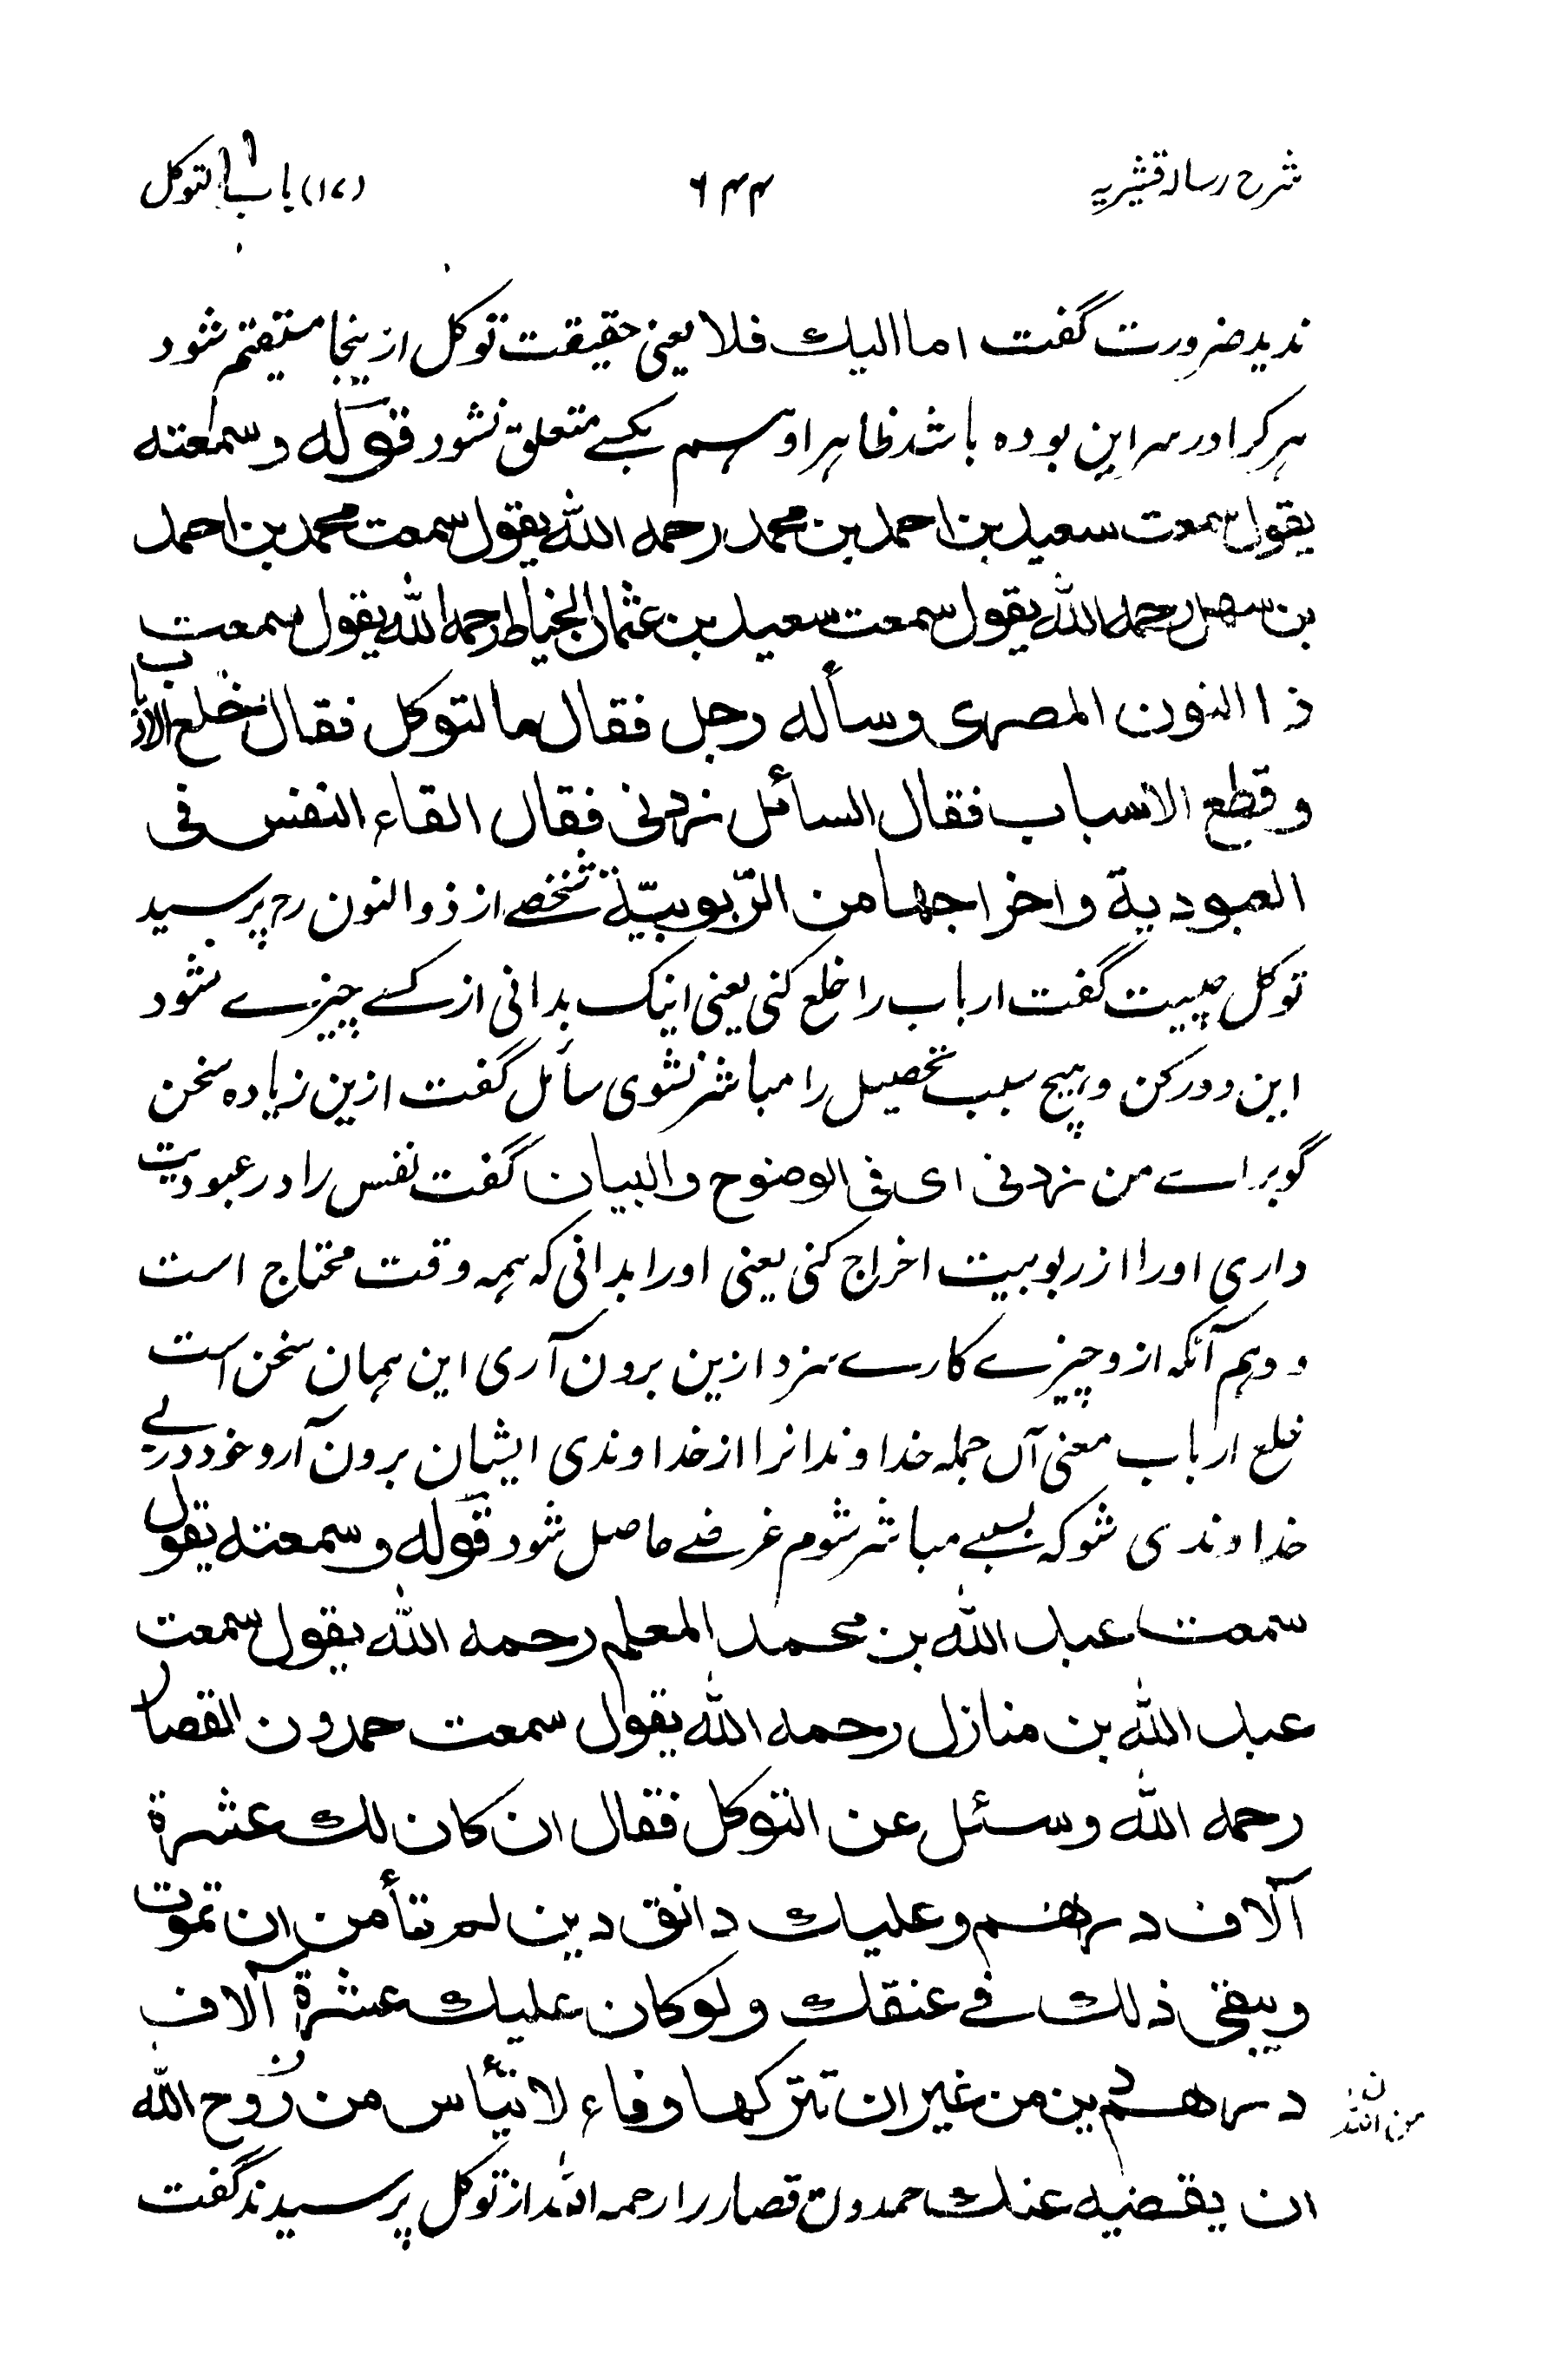 شرح رسالہ قشیریہ
۶۴۴
(۱۷) باب التوکل
ندید ضرورت گفت اما الیك فلا یعنی حقیقت توکل ازینجا مستقیم شود
ہر کرا در سر این بوده باشد ظاہر او ہم بکسے متعلق نشود قوله وسمعته
يقول سمعت سعيد بن احمد بن محمد رحمه الله يقول سمعت محمد بن احمد
بن سهل رحمه الله يقول سمعت سعيد بن عثمان الخياط رحمه الله يقول سمعت
ذا النون المصرى وسأله رجل فقال ما لتوكل فقال خلع الارباب
وقطع الاسباب فقال السائل زدنى فقال القاء النفس فى
العبودية واخراجها من الرّبوبيّة شخصے از ذوالنون رح پرسید
توکل چیست گفت ارباب را خلع کنی یعنی اینک بدانی از کسے چیزے شود
این دور کن و ہیچ سبب تحصیل را مباشر نشوی سائل گفت ازین زیاده سخن
گو براے من زدنی ای فی الوضوح والبیان گفت نفس را در عبودیت
داری او را از ربوبیت اخراج کنی یعنی او را بدانی کہ ہمہ وقت محتاج است
و وہم آنکہ ازو چیزے کارے سزد ازین برون آری این ہمان سخن است
خلع ارباب معنی آں جملہ خداوندانرا از خداوندی ایشان برون آر و خود در پے
خداوندی شو کہ بسببے مباشر شوم غرضے حاصل شود قوله وسمعته يقول
سمعت عبد الله بن محمد المعلم رحمه الله يقول سمعت
عبد الله بن منازل رحمه الله يقول سمعت حمدون القصار
رحمه الله وسئل عن التوكل فقال ان كان لك عشرة
آلاف درهم وعليك دانق دين لم تأمن ان تموت
ويبقى ذلك فى عنقك ولو كان عليك عشرة آلاف
درهم دين من غير ان تتركها وفاء لا تيأس من روح الله
ن
من الله
ان يقضيه عنك حمدون قصار را رحمہ الله از توکل پرسیدند گفت